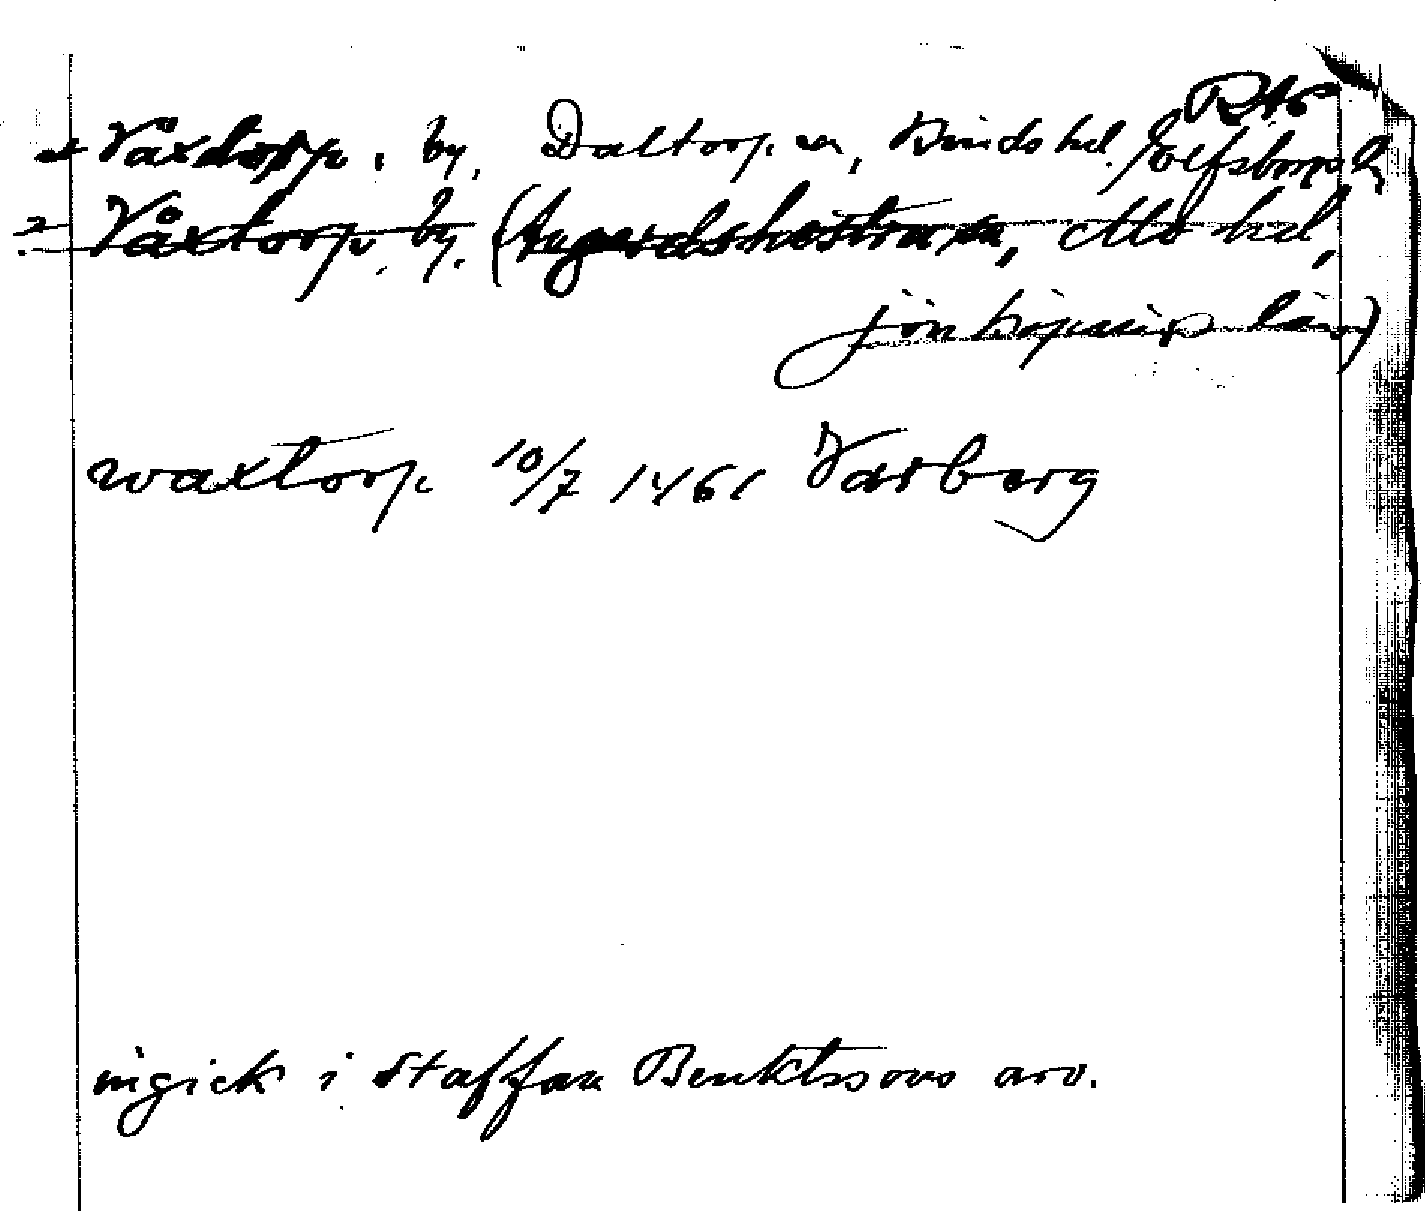 RAp
= Våxtorp, by, Daltorp sn, Kinds hd. Elfsborgs l.
= Våxtorp, by. (Angerdshestra sn, Mo hd,
Jönköpings län)
waxtorp 10/7 1461 Varberg
ingick i Staffan Benktssons arv.